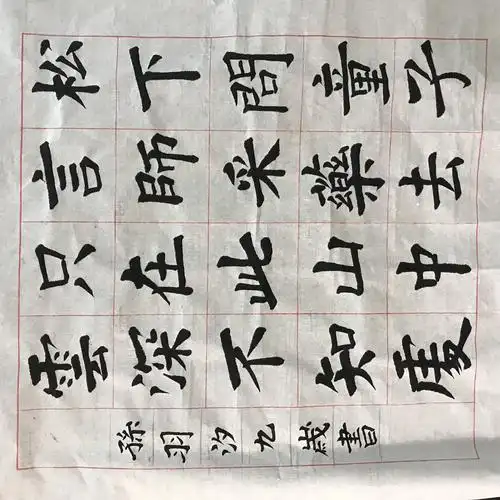 松下問童子
言師采藥去
只在此山中
雲深不知處
孫羽汐九歲書